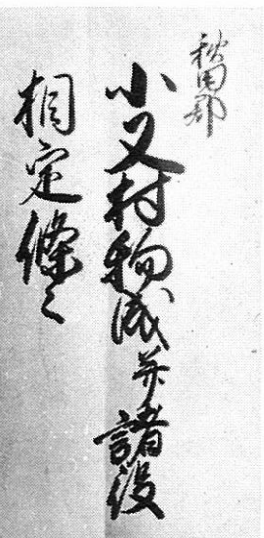 秋田郡
小又村物成并諸役
相定條々